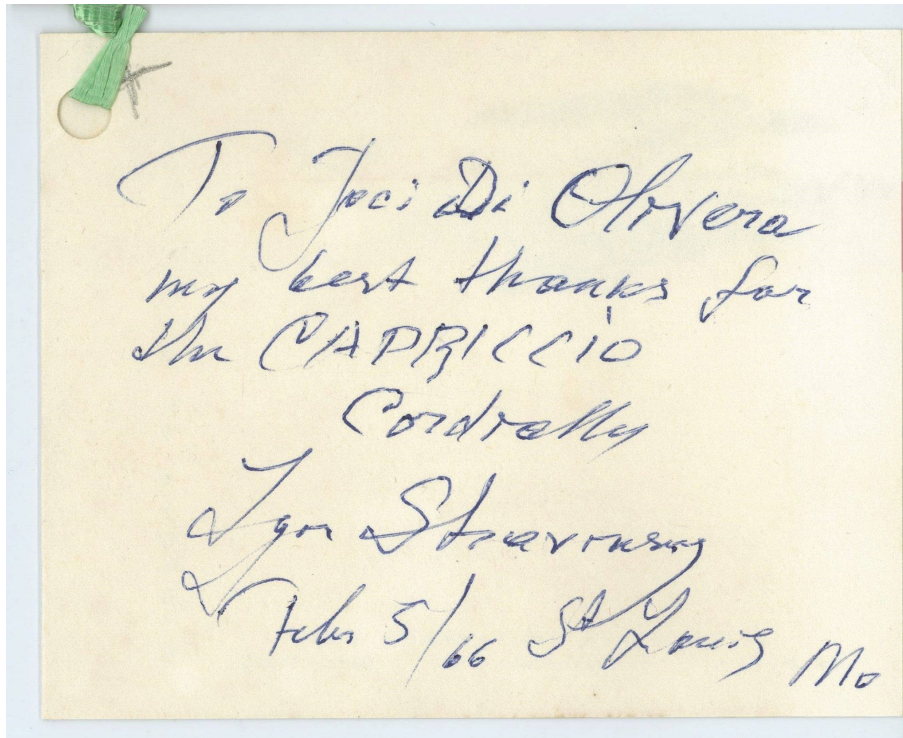 To Joci Di Olivera
my best thanks for
the CAPRICCIO
Cordially
Igor Stravinsky
Feb 5/66 St Louis Mo